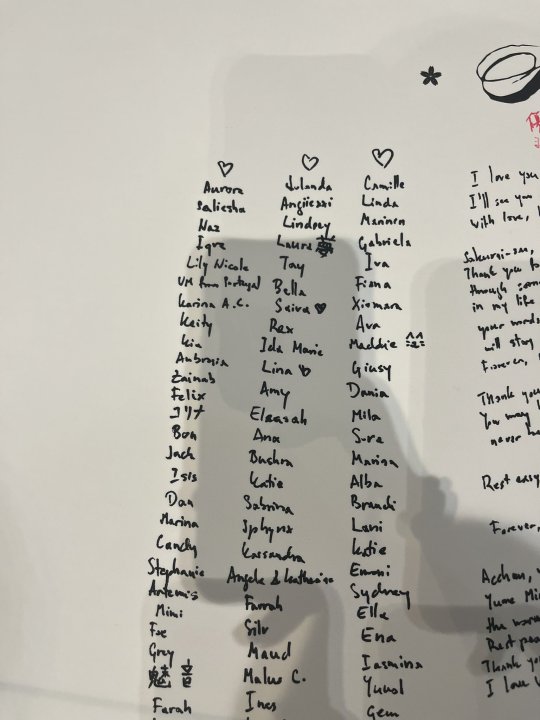 Aurora
Saliesha
Naz
Iqra
Lily Nicole
VM from Portugal
Karina A.C.
Keity
Kia
Ambrosia
Zainab
Felix
ヨリナ
Bon
Jack
Isis
Dan
Marina
Candy
Stephanie
Artemis
Mimi
Fae
Grey
魅音
Farah
Yulanda
Angiiezzi
Lindsey
Laura 夢
Tay
Bella
Saiva
Rex
Ida Marie
Lina
Amy
Eleasah
Ana
Bushra
Katie
Sabrina
Sphynx
Kassandra
Angela & Katherine
Farrah
Silv
Maud
Malus C.
Ines
Camille
Linda
Maninen
Gabriela
Iva
Fiona
Xiomara
Ava
Maddie
Giusy
Dania
Mila
Sora
Marina
Alba
Brandi
Lani
Katie
Emoni
Sydney
Elle
Ena
Iasmina
Yuuol
Gem
I love you
I'll see you
With love,
Sakurai-san,
Thank you for
through some
in my life
your words
will stay
Forever,
Thank you
You may
never
Rest easy
Forever,
Acchan,
Yume
the
Rest
Thank you
I love